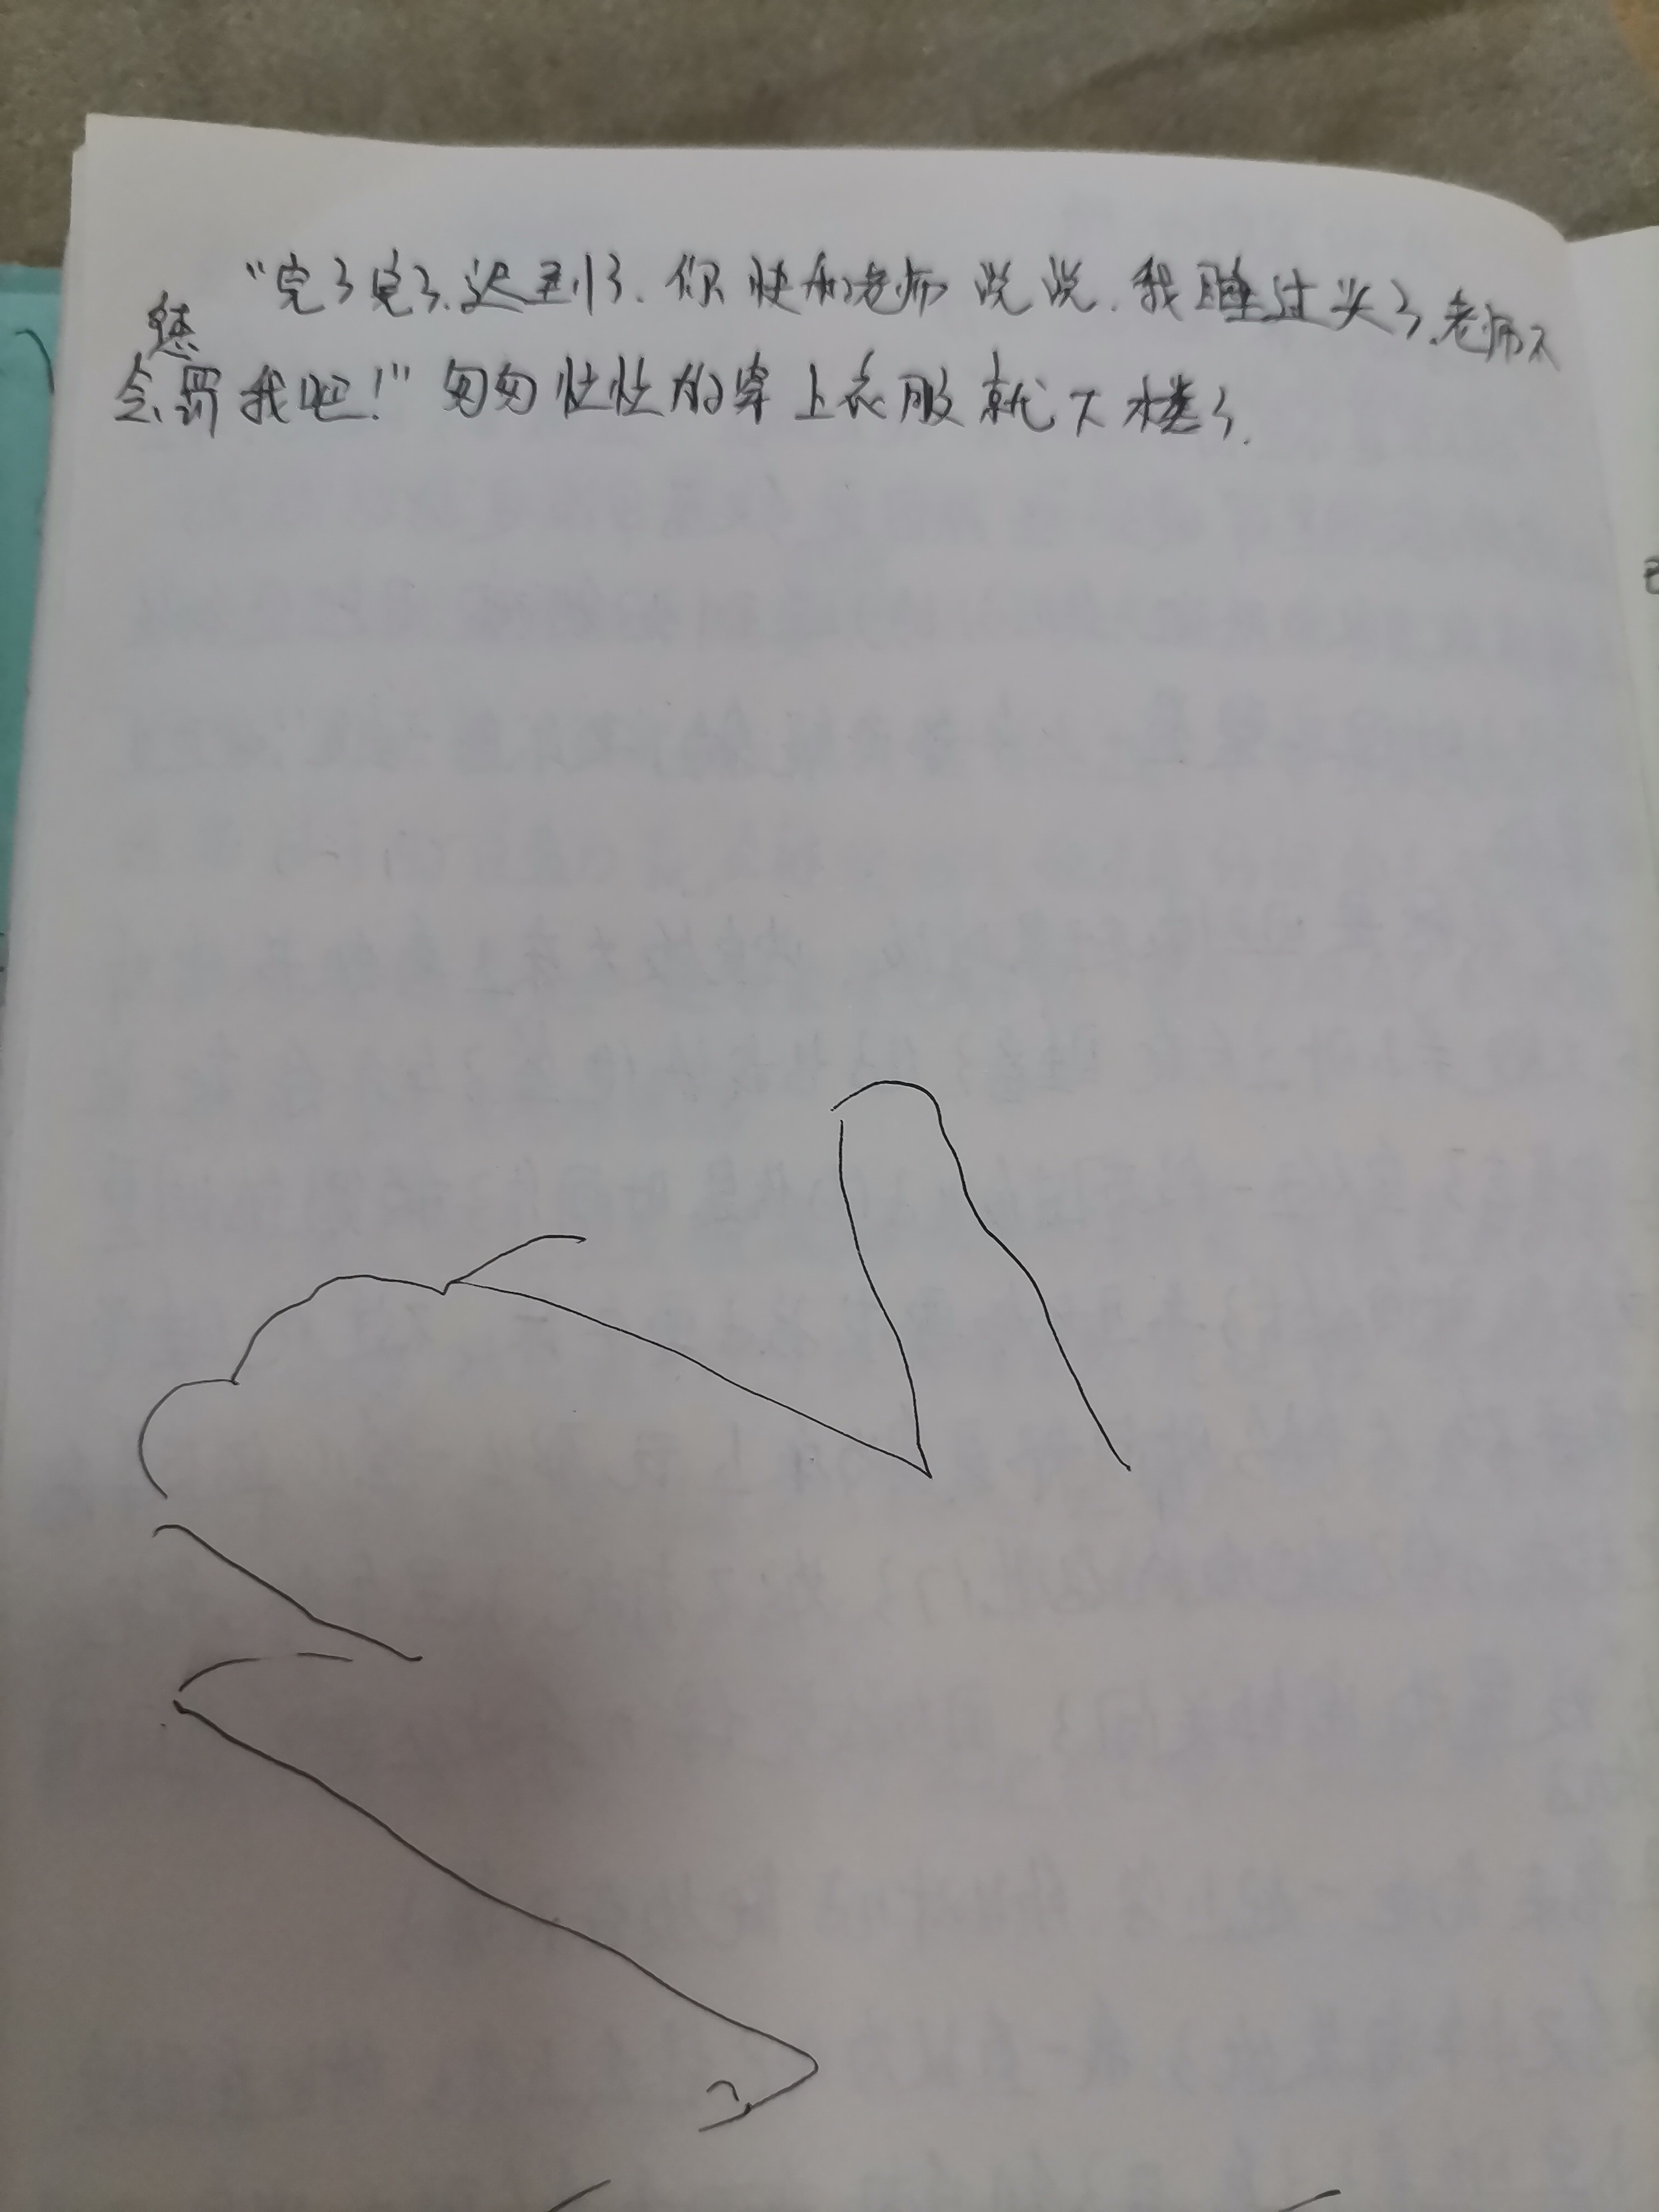 “完了完了.迟到了.你快和老师说说.我睡过头了.老师不
会惩罚我吧!”匆匆忙忙的穿上衣服就下楼了.